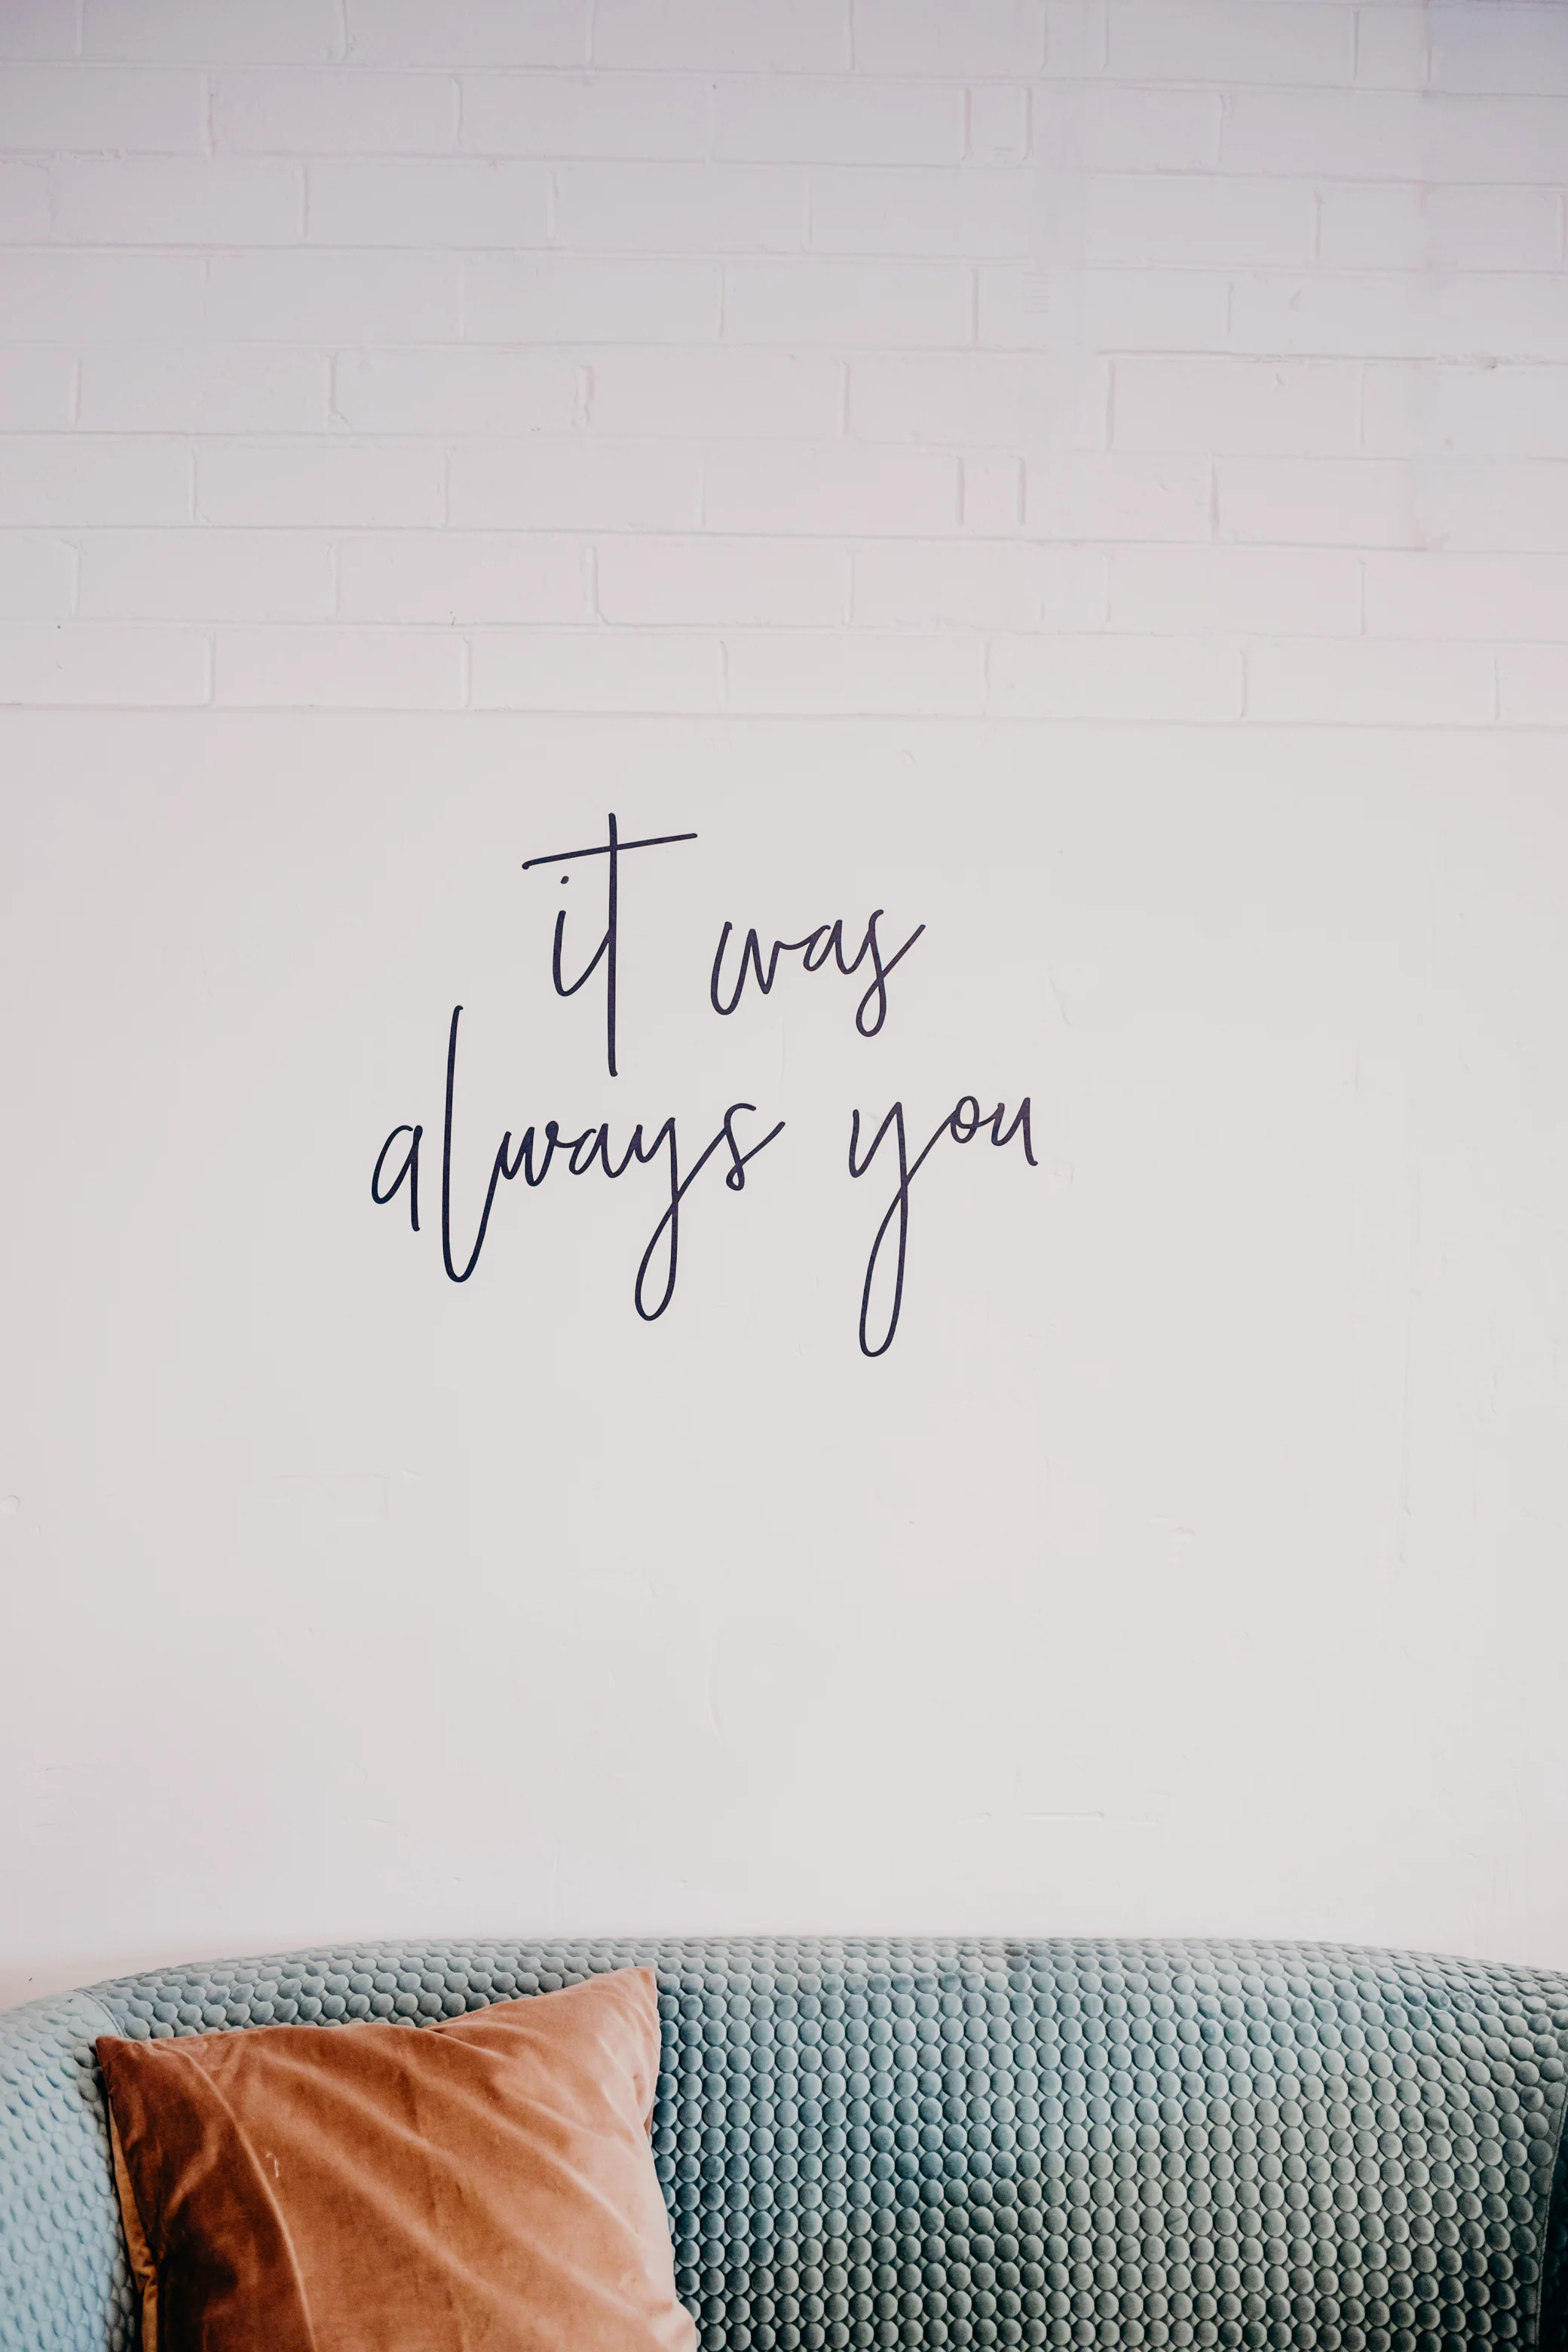 it was
always you